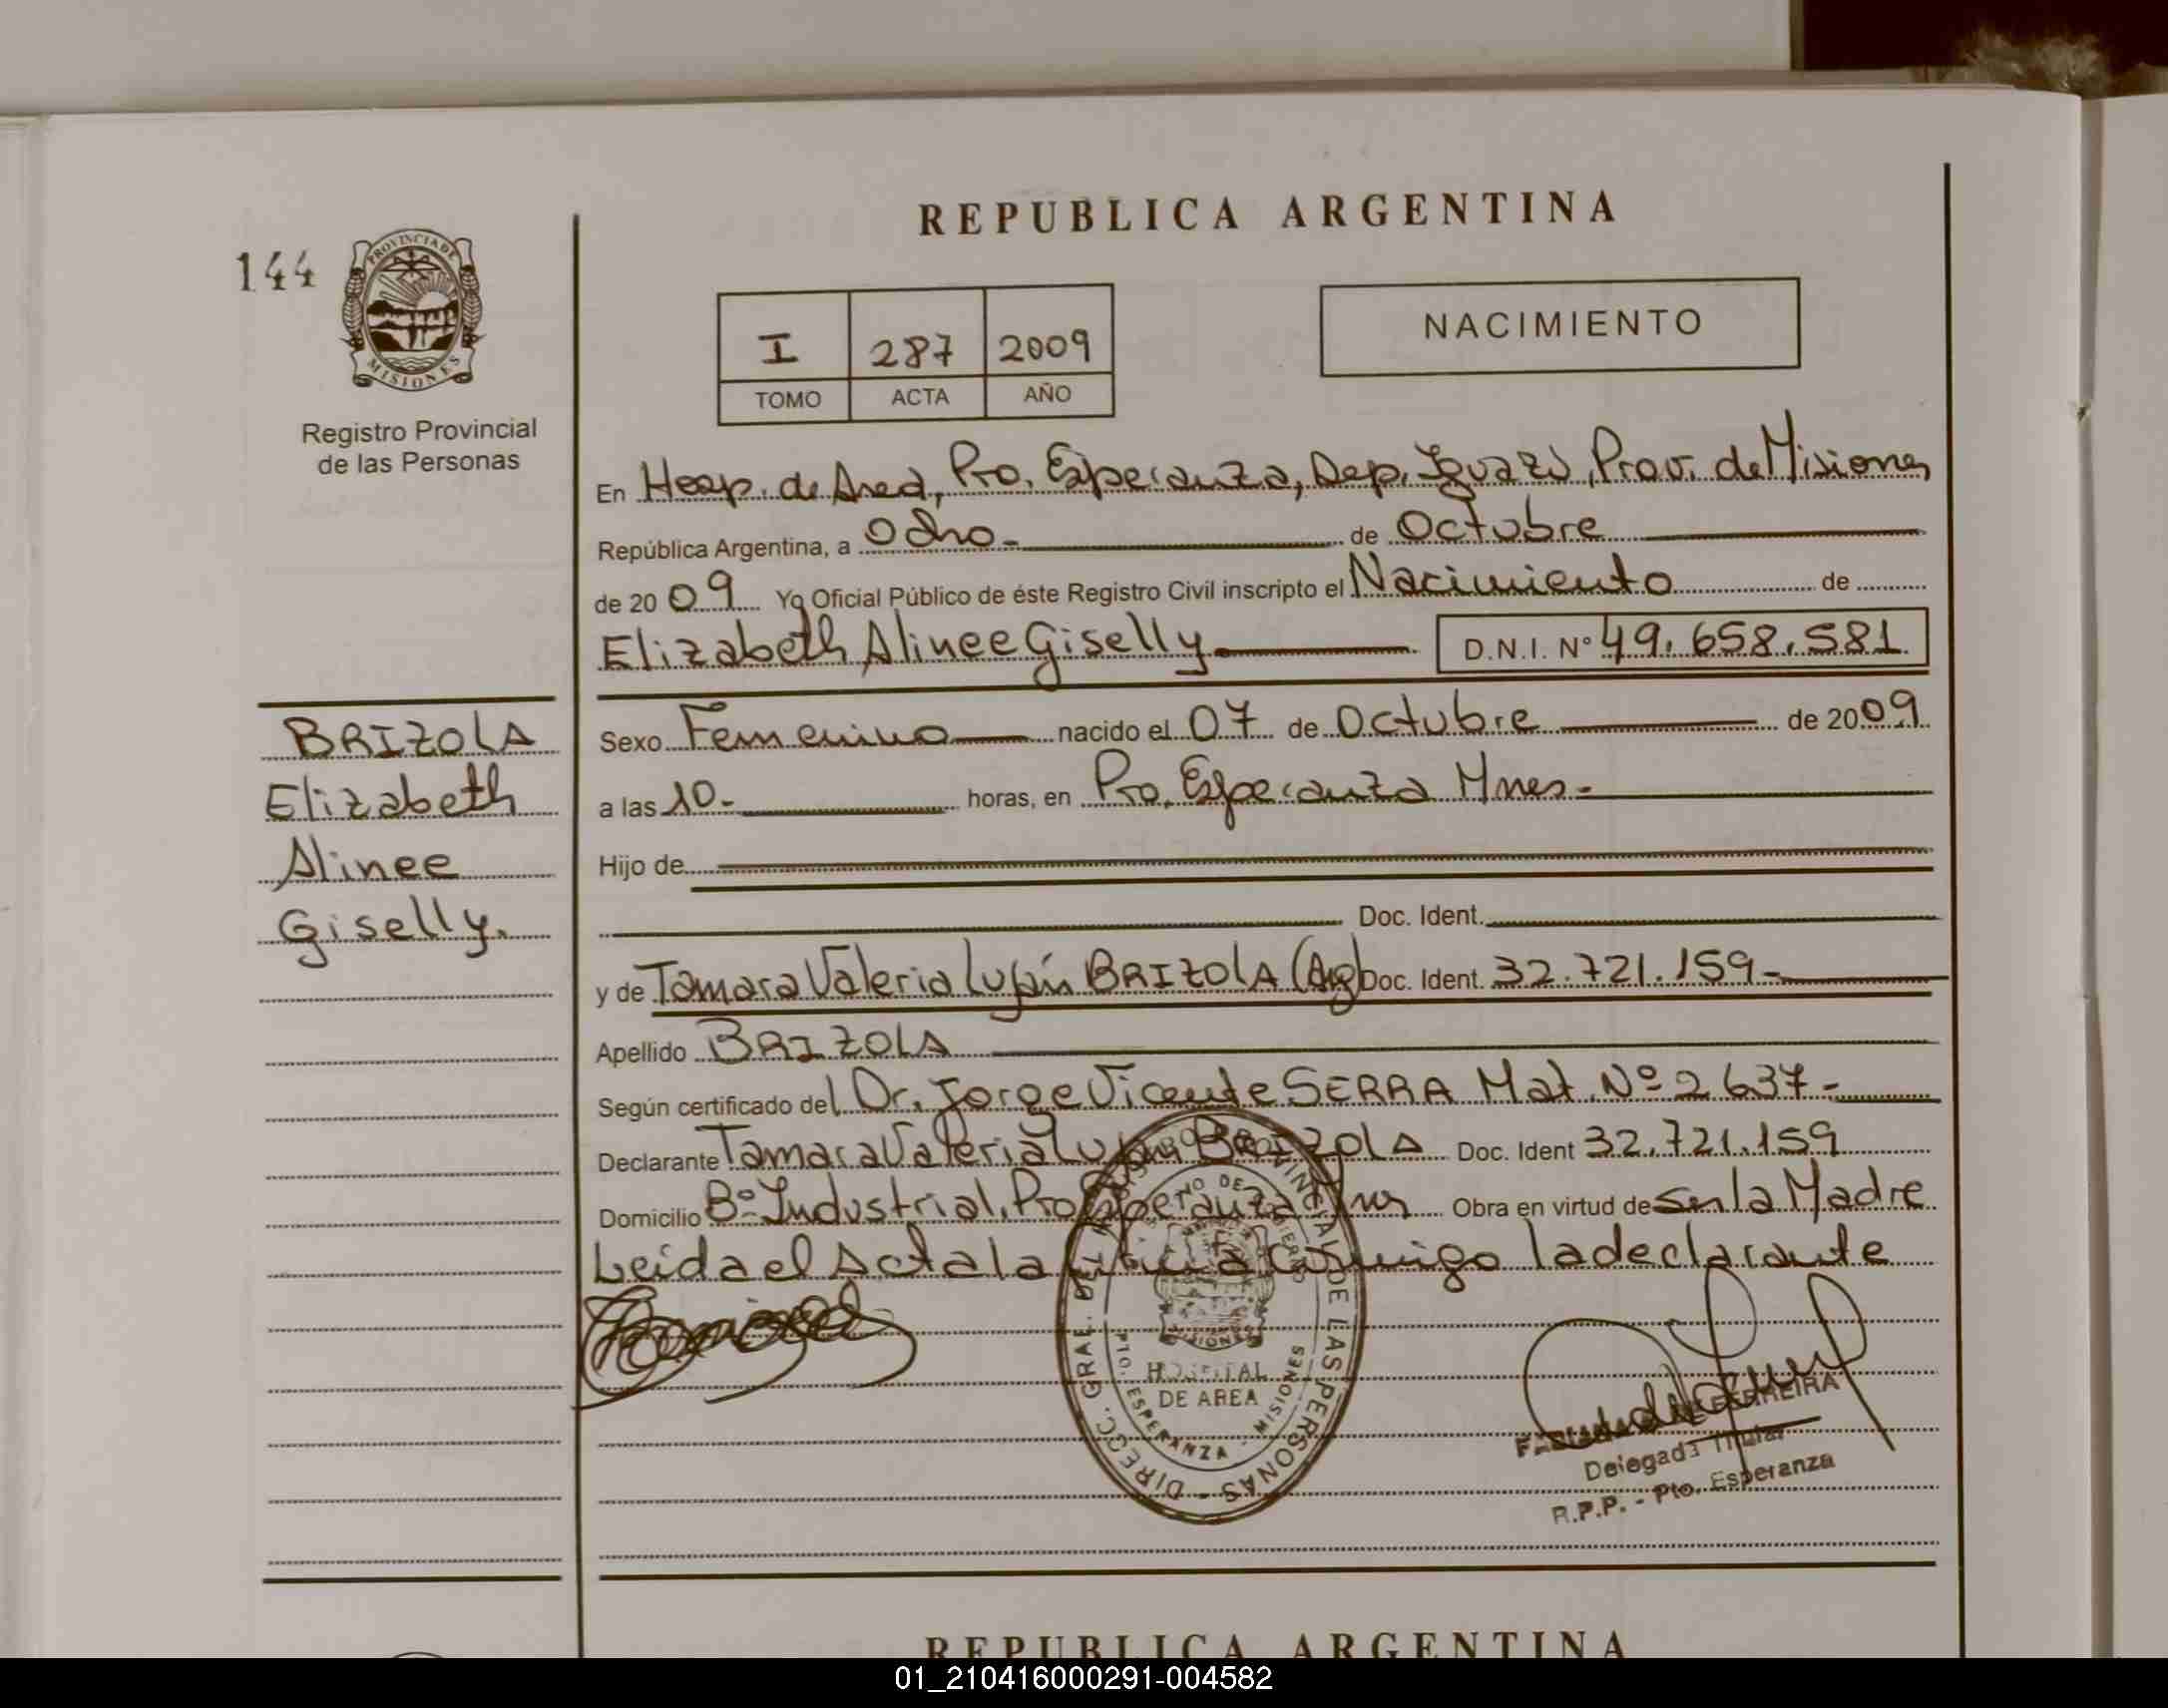 REPUBLICA ARGENTINA
144
PROVINCIA DE
MISIONES
Registro Provincial
de las Personas
I 287 2009
TOMO ACTA AÑO
NACIMIENTO
En Hosp. de Area, Pto. Esperanza, Dep. Iguazú, Prov. de Misiones
República Argentina, a Ocho.- de Octubre
de 2009 Yo Oficial Público de éste Registro Civil inscripto el Nacimiento de
Elizabeth Alinee Giselly D.N.I. N° 49.658.581
BRIZOLA
Elizabeth
Alinee
Giselly.
Sexo Femenino nacido el 07 de Octubre de 2009
a las 10.- horas, en Pto. Esperanza Mnes.-
Hijo de
Doc. Ident.
y de Tamara Valeria Luján BRIZOLA (Arg) Doc. Ident. 32.721.159-
Apellido BRIZOLA
Según certificado del Dr. Jorge Vicente SERRA Mat. Nº 2637-
Declarante Tamara Valeria Lujan BRIZOLA Doc. Ident 32.721.159
Domicilio Bº Industrial, Pto Esperanza Mnes Obra en virtud de Ser la Madre
Leida el Acta la firma conmigo la declarante
DIREC. GRAL. DEL REGISTRO PROVINCIAL DE LAS PERSONAS
MISIONES
HOSPITAL
DE AREA
PTO. ESPERANZA - MISIONES
FERREIRA
Delegada Titular
R.P.P. - Pto. Esperanza
REPUBLICA ARGENTINA
01_210416000291-004582